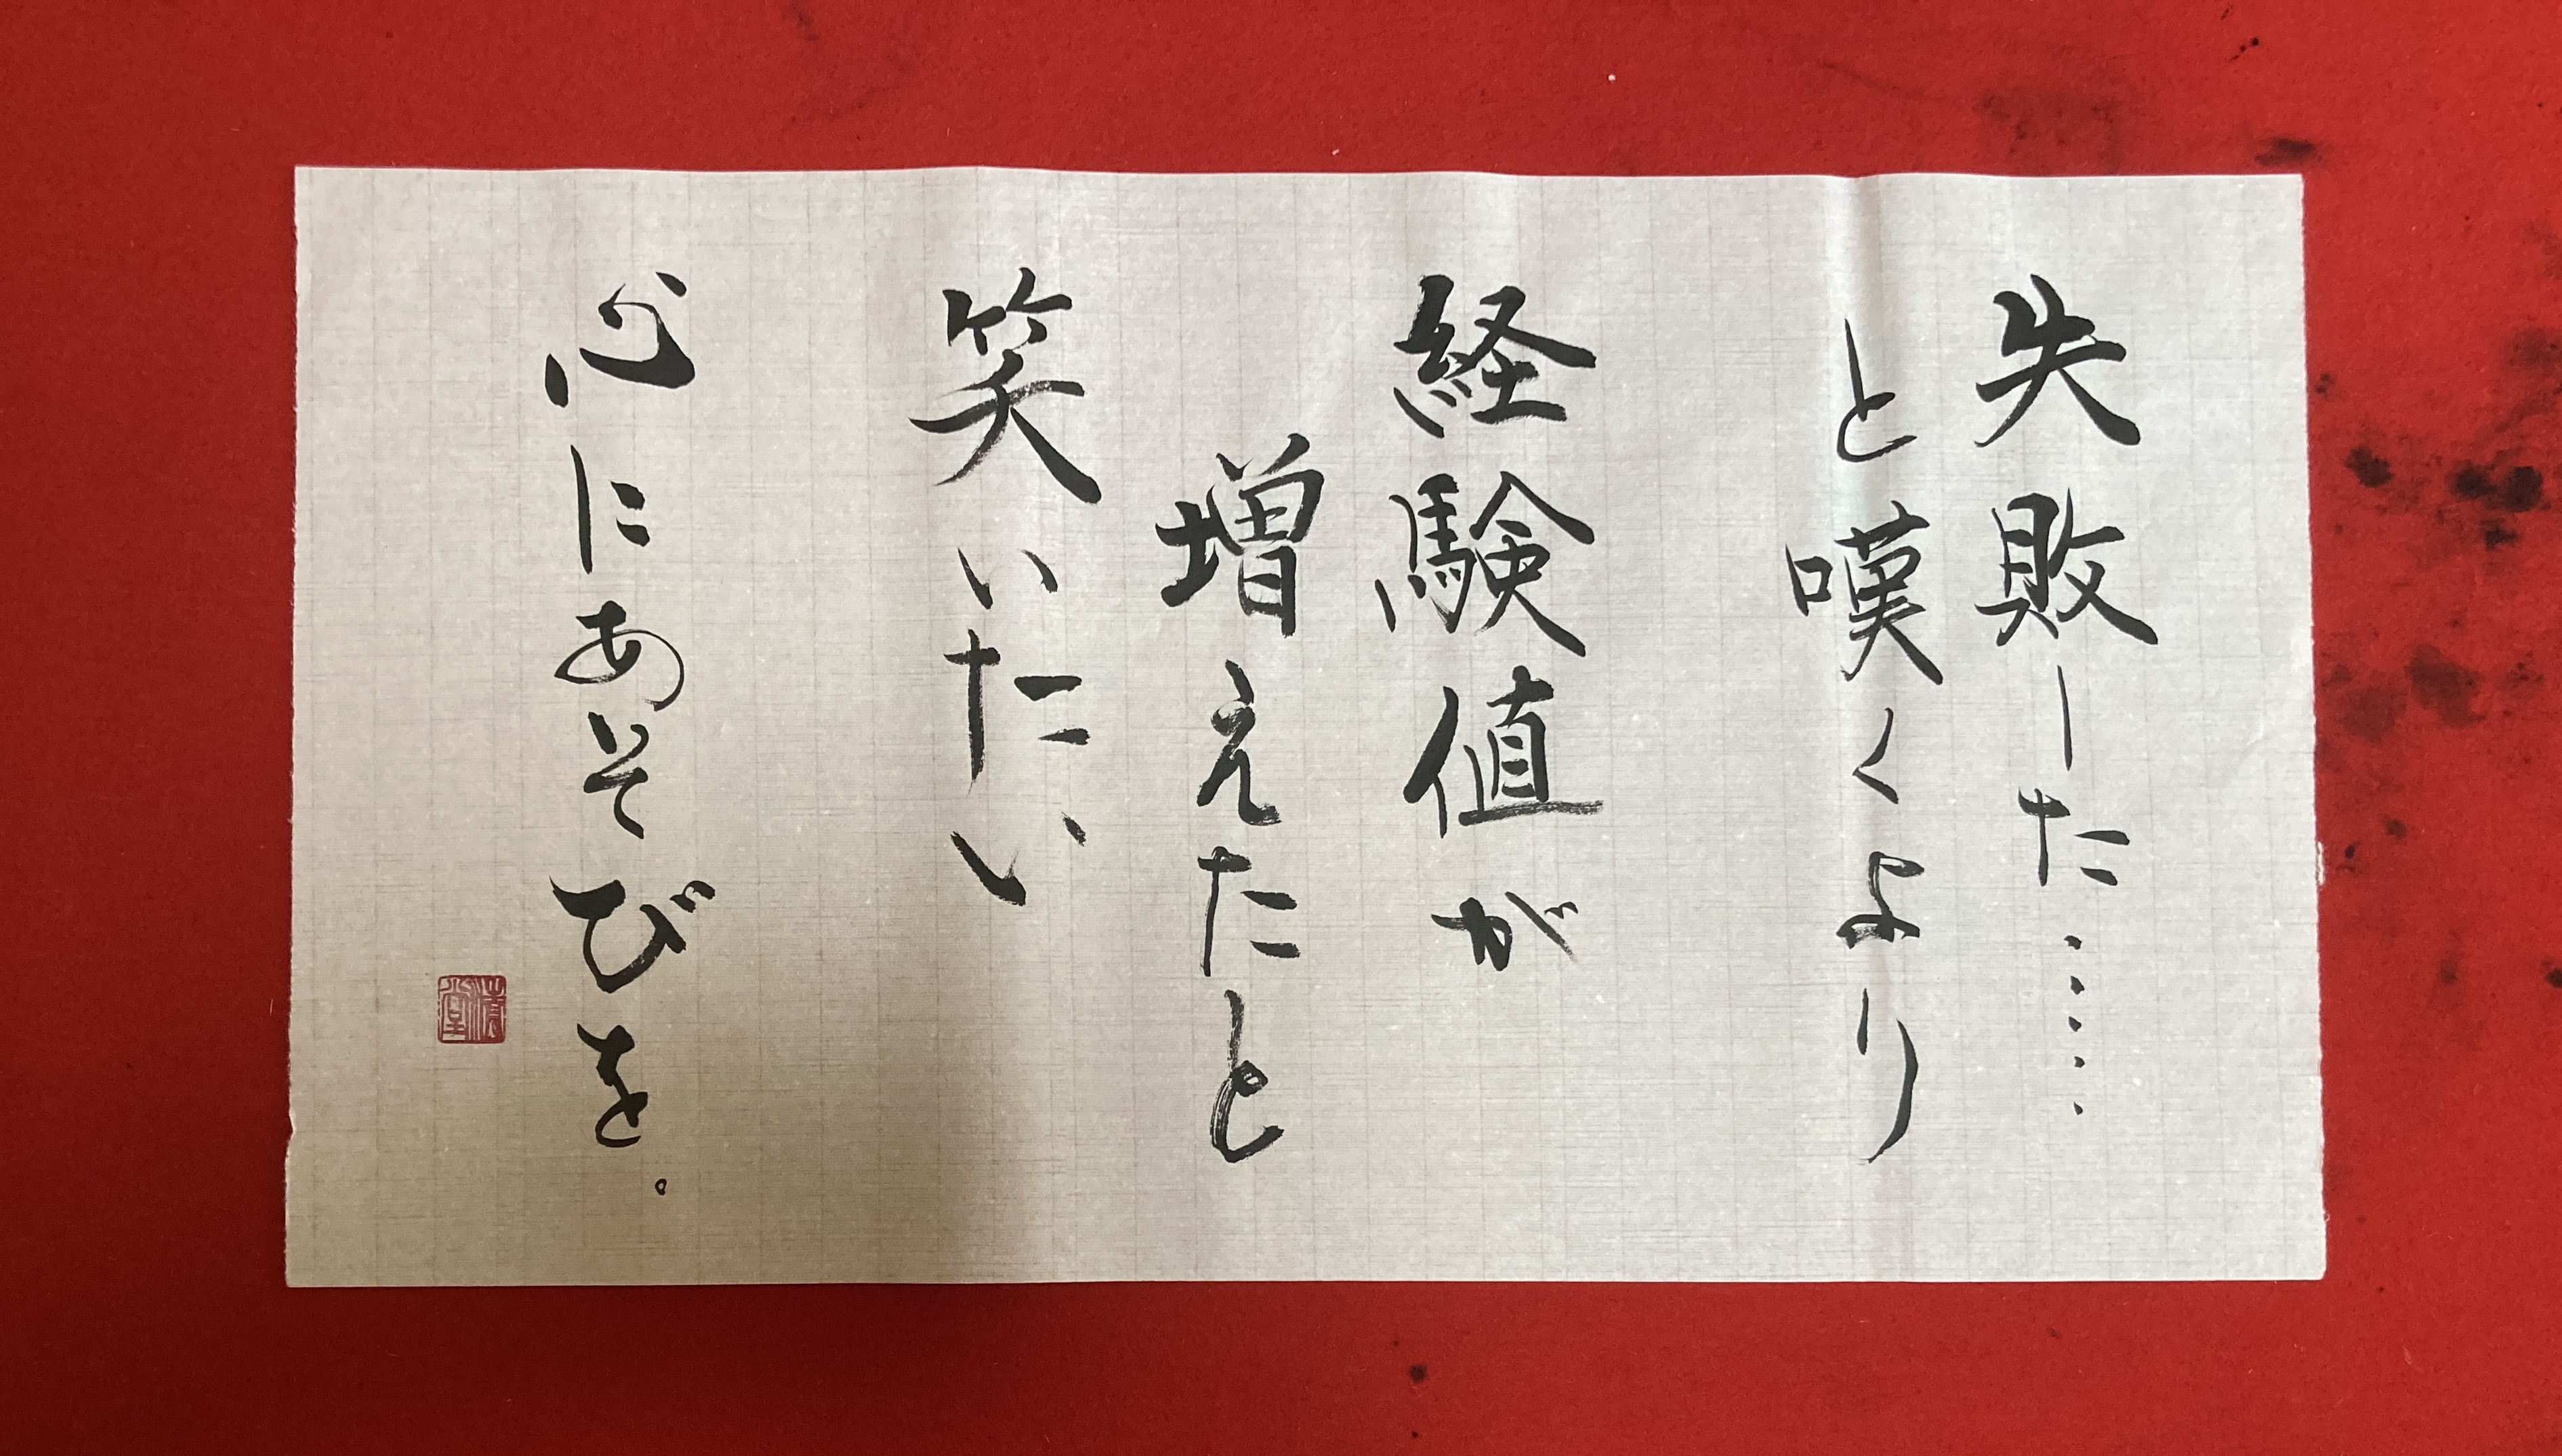 失敗した……
と嘆くより
経験値が
増えたと
笑いたい
心にあそびを。